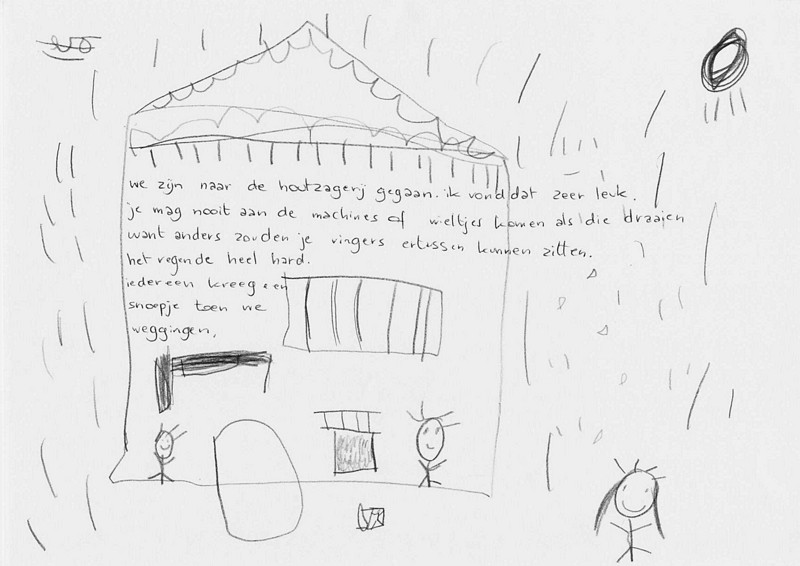 we zijn naar de houtzagerij gegaan. ik vond dat zeer leuk.
je mag nooit aan de machines of wieltjes komen als die draaien
want anders zouden je vingers ertussen kunnen zitten.
het regende heel hard.
iedereen kreeg een
snoepje toen we
weggingen,